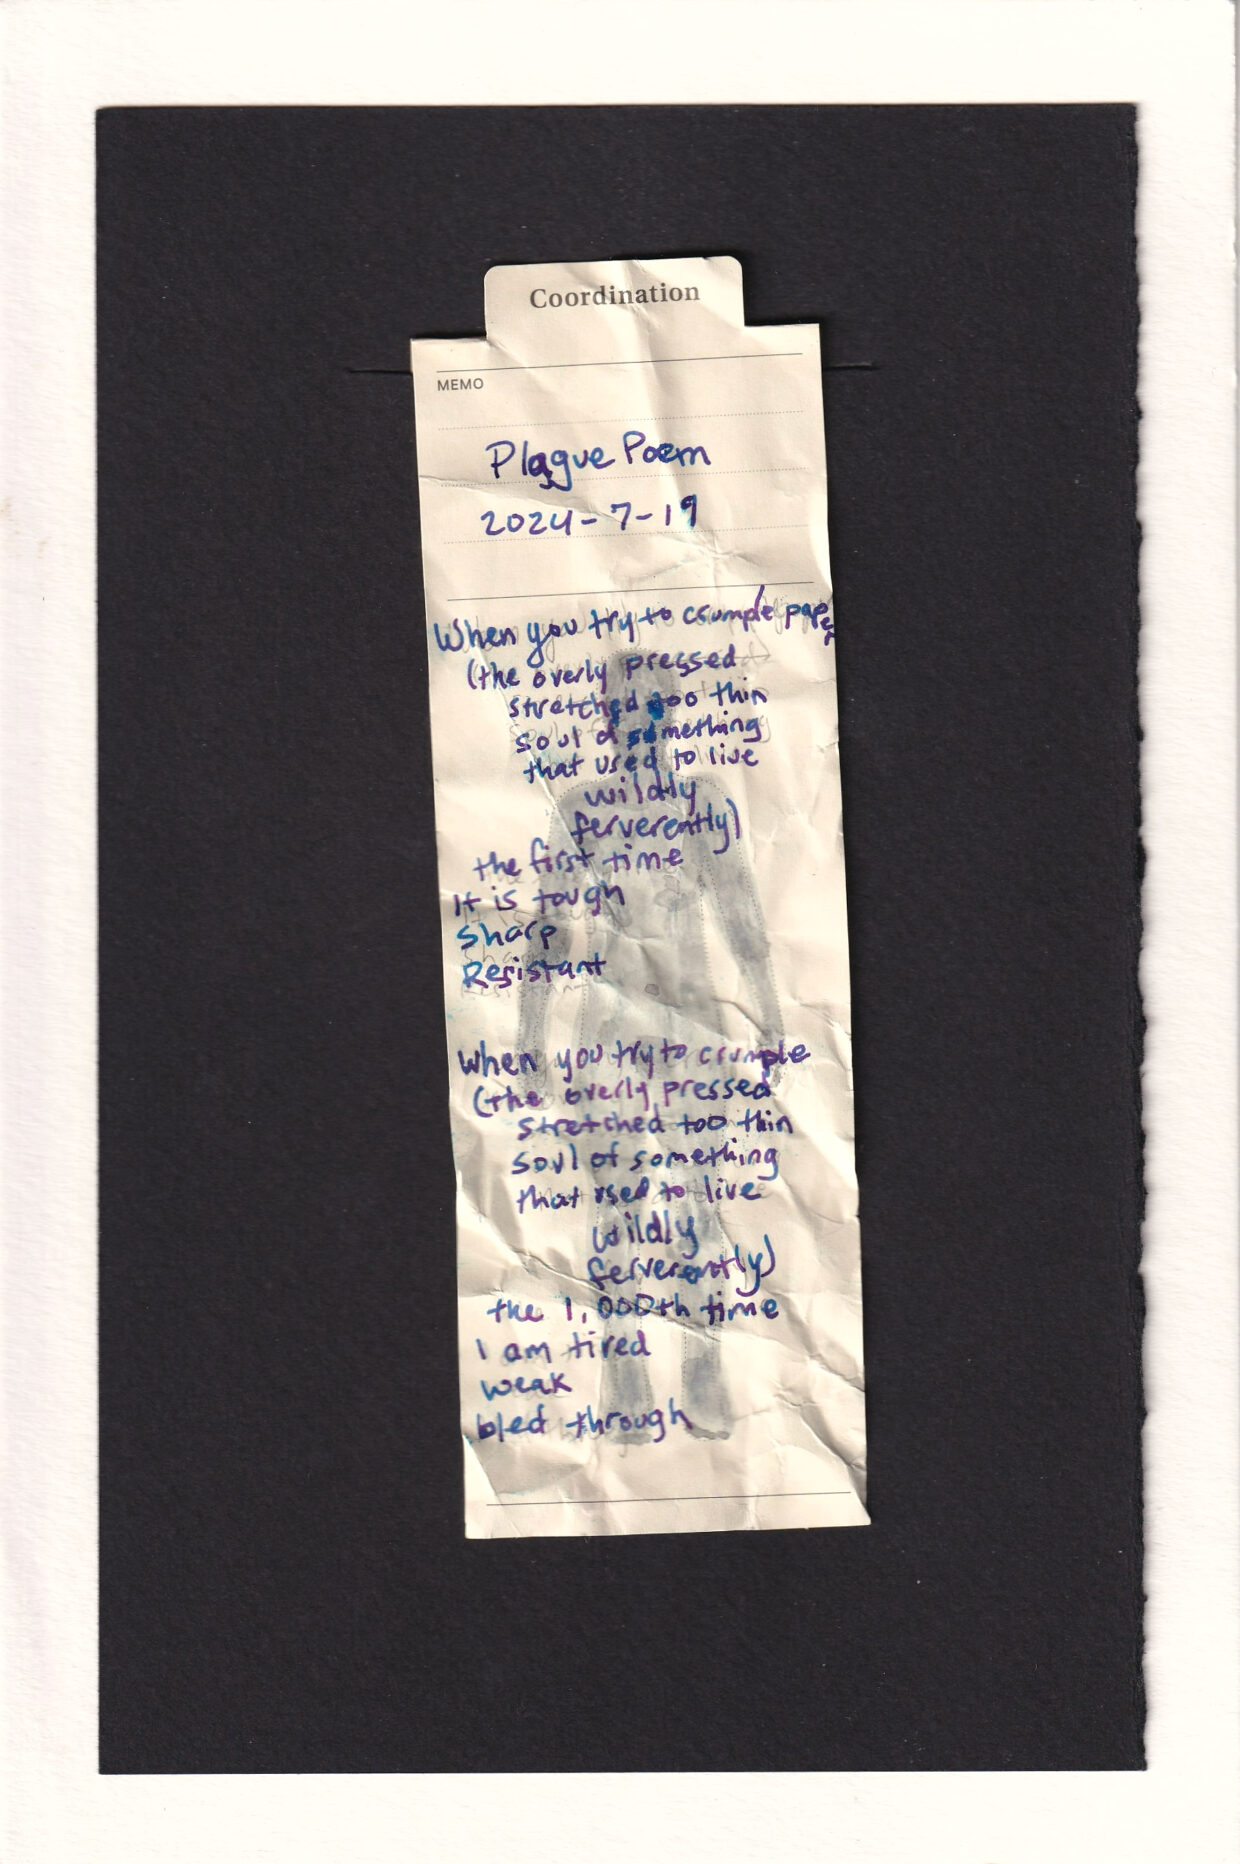 Coordination
MEMO
Plague Poem
2024-7-19
When you try to crumple paper
(the overly pressed
stretched too thin
soul of something
that used to live
wildly
ferverently)
the first time
It is tough
Sharp
Resistant
When you try to crumple
(the overly pressed
stretched too thin
soul of something
that used to live
wildly
ferverently)
the 1,000th time
I am tired
weak
bled through